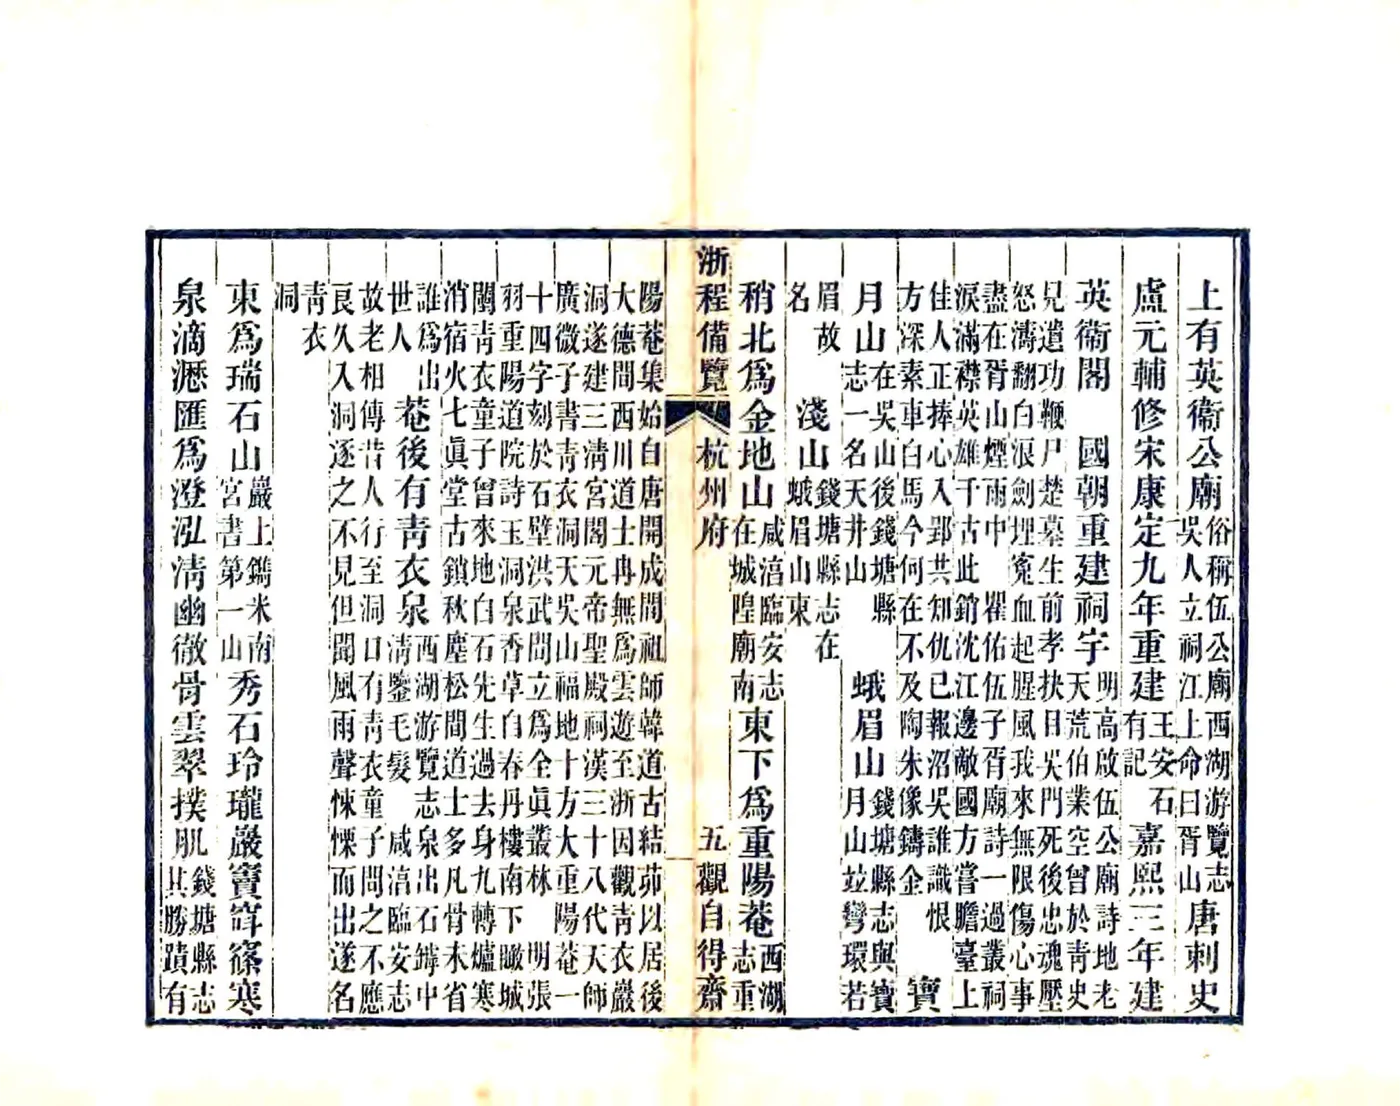 上有英衞公廟俗稱伍公廟西湖游覽志吳人立祠江上命曰胥山唐刺史
盧元輔修宋康定九年重建王安石有記嘉熙三年建
英衞閣 國朝重建祠宇明高啟伍公廟詩地老天荒伯業空曾於靑史
見遣功鞭尸楚墓生前孝抉目吳門死後忠魂壓
怒濤翻白浪劍埋寃血起腥風我來無限傷心事
盡在胥山煙雨中 瞿佑伍子胥廟詩一過叢祠
淚滿襟英雄千古此銷沈江邊敵國方嘗膽臺上
佳人正捧心入郢共知仇已報沼吳誰識恨
方深素車白馬今何在不及陶朱像鑄金 寶
月山在吳山後錢塘縣志一名天井山 蛾眉山錢塘縣志與寶月山並彎環若
眉故名 淺山錢塘縣志在蛾眉山東
稍北爲金地山咸淳臨安志在城隍廟南東下爲重陽菴西湖志重
浙程備覽 杭州府 五 觀自得齋
陽菴集始自唐開成間祖師韓道古結茆以居後
大德間西川道士冉無爲雲遊至浙因觀靑衣巖
洞遂建三淸宮閣元帝聖殿祠漢三十八代天師
廣微子書靑衣洞天吳山福地十方大重陽菴一
十四字刻於石壁洪武間立爲全眞叢林 明張
羽重陽道院詩玉洞泉香草自春丹樓南下瞰城
闉靑衣童子曾來地白石先生過去身九轉爐寒
消宿火七眞堂古鎖秋塵松間道士多凡骨未省
誰爲出世人 菴後有靑衣泉西湖游覽志泉出石罅中淸鑒毛髮 咸淳臨安志
故老相傳昔人行至洞口有靑衣童子問之不應
良久入洞逐之不見但聞風雨聲悚慄而出遂名
靑衣
洞
東爲瑞石山巖上鐫米南宮書第一山秀石玲瓏巖竇篠寒
泉滴瀝匯爲澄泓淸幽徹骨雲翠撲肌錢塘縣志其勝蹟有